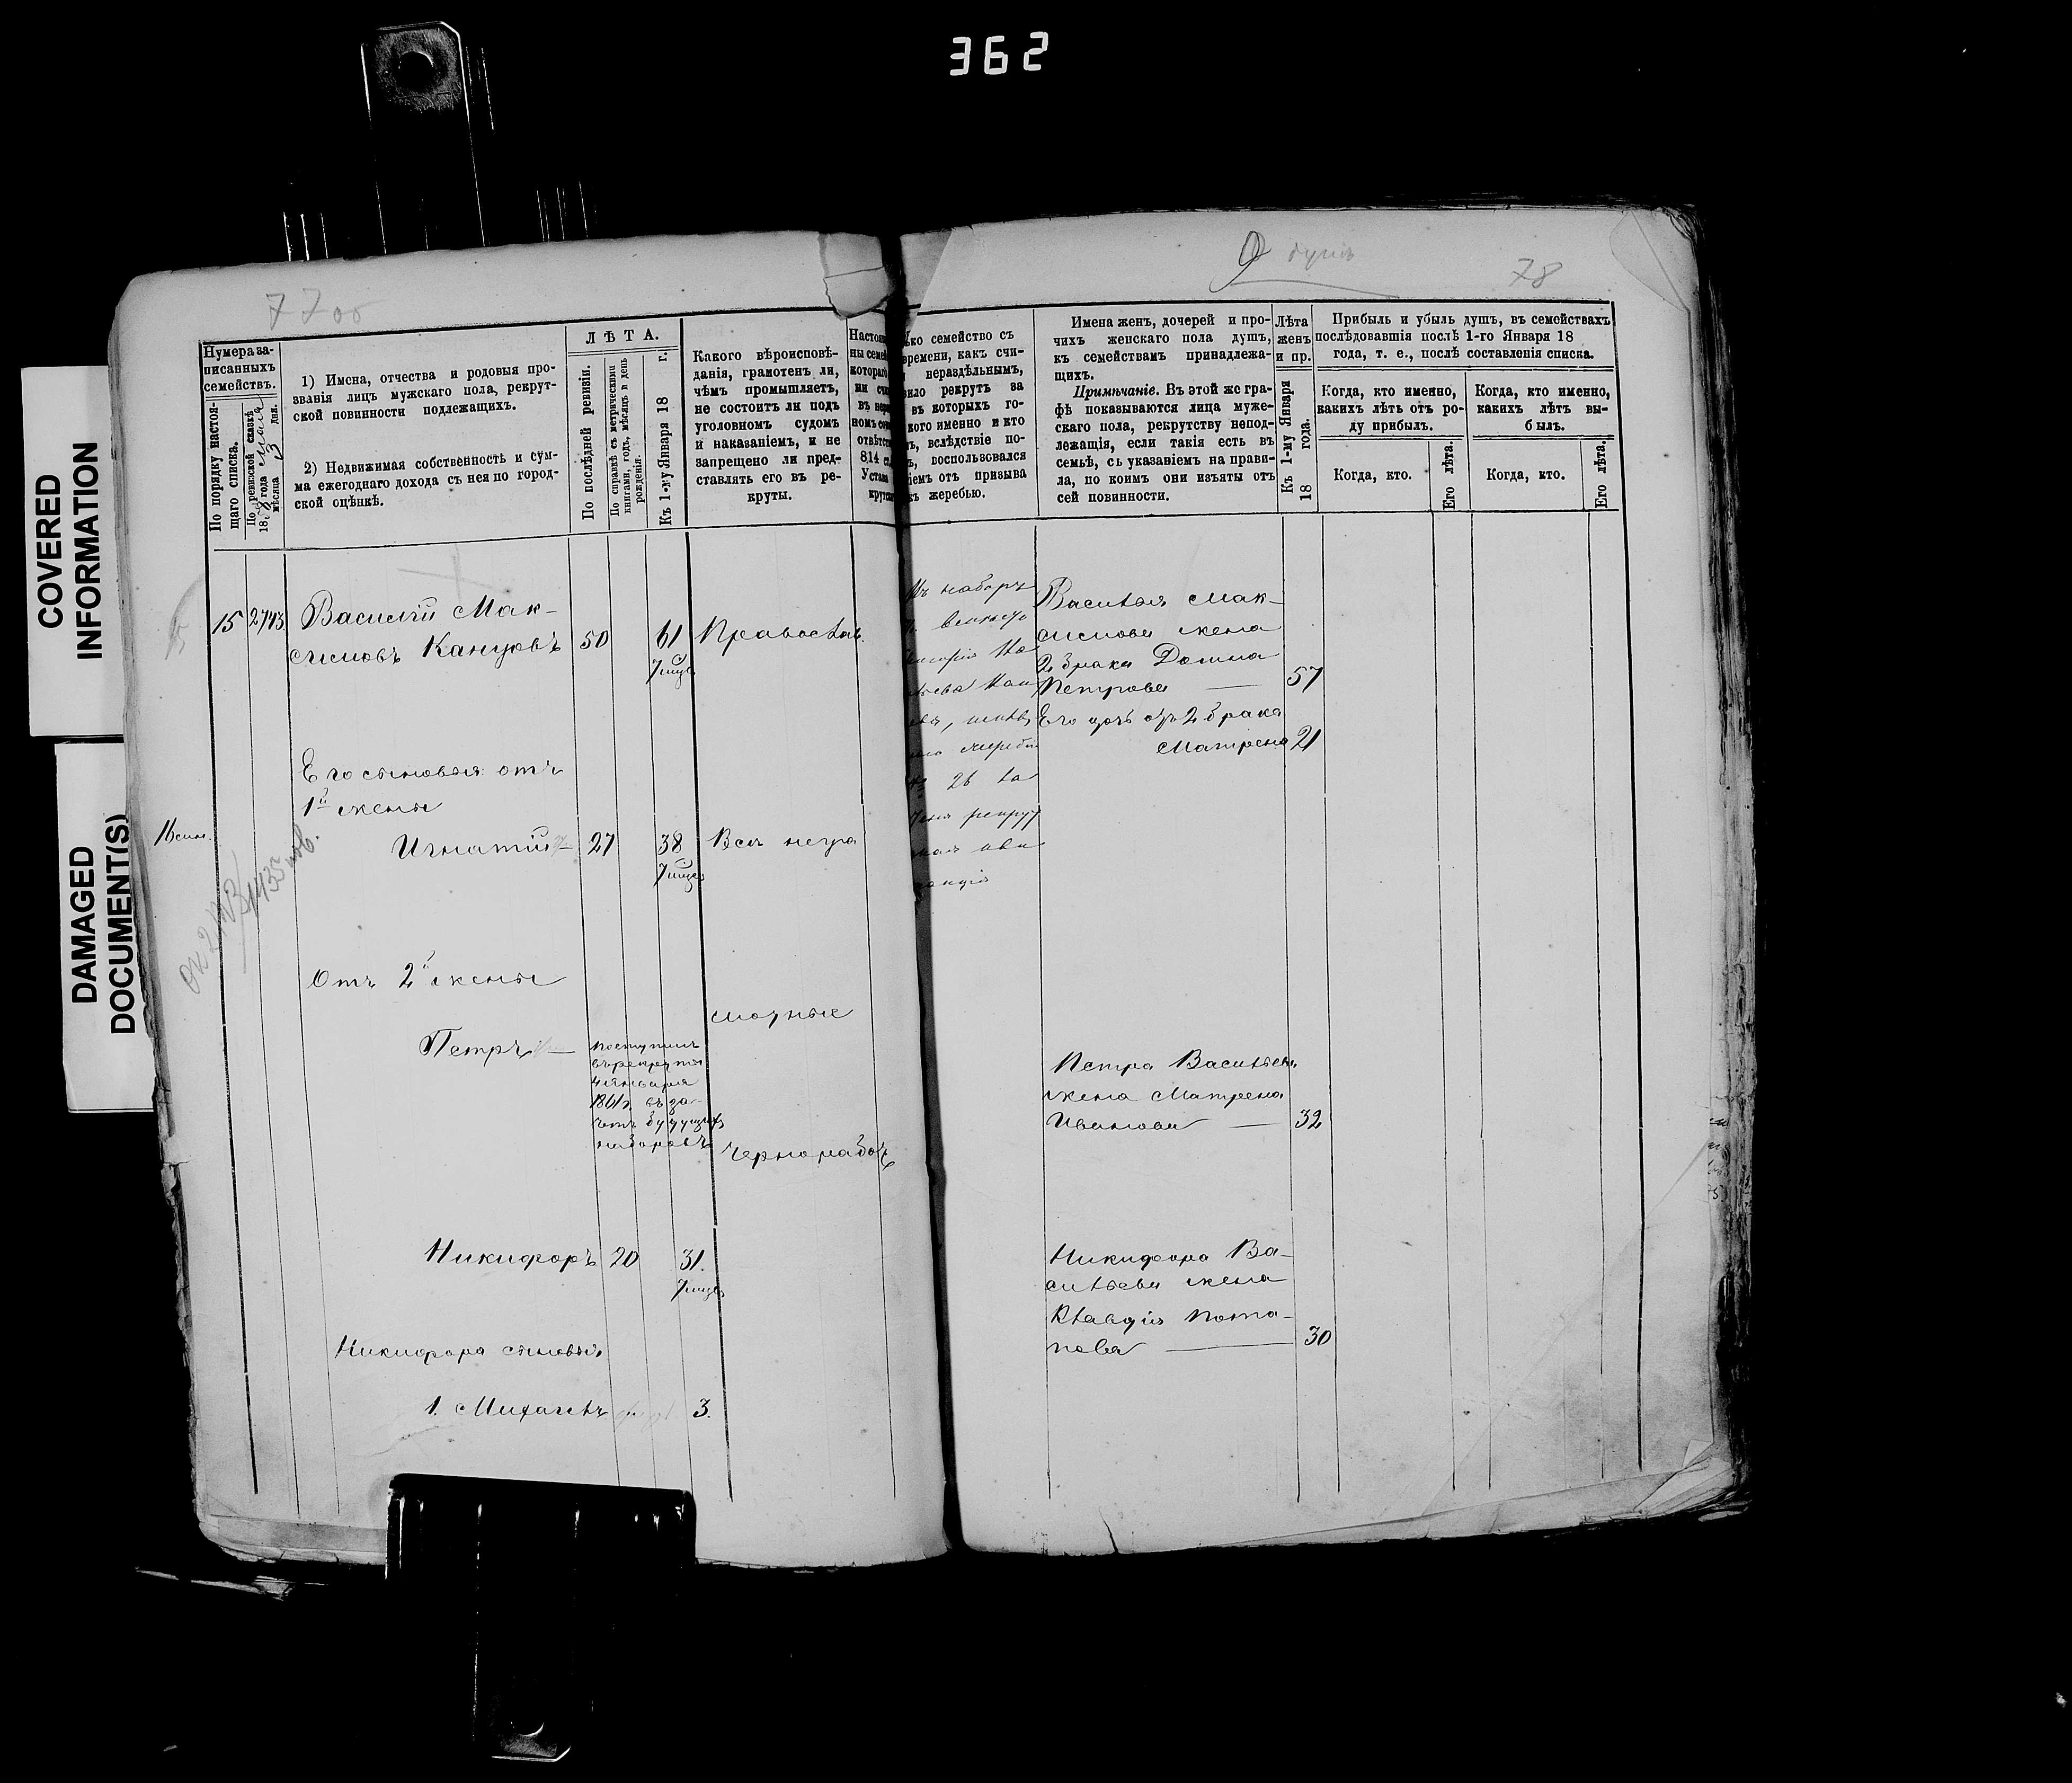 362
COVERED
INFORMATION
DAMAGED
DOCUMENT(S)
77 об
Нумера за-
писанныхъ
семействъ.
По порядку настоя-
щаго списка.
По ревизской сказкѣ
18 года мая
мѣсяца 3 дня.
1) Имена, отчества и родовыя про-
званія лицъ мужскаго пола, рекрут-
ской повинности подлежащихъ.
2) Недвижимая собственность и сум-
ма ежегоднаго дохода съ нея по город-
ской оцѣнкѣ.
ЛѢТА.
По послѣдней ревизіи.
По справкѣ съ метрическими
книгами, годъ, мѣсяцъ и день
рожденія.
Къ 1-му Января 18 г.
Какого вѣроисповѣ-
данія, грамотенъ ли,
чѣмъ промышляетъ,
не состоитъ ли подъ
уголовномъ судомъ
и наказаніемъ, и не
запрещено ли пред-
ставлять его въ ре-
круты.
15 2743 Василій Мак-
симовъ Канцовъ 50 61 Православ.
Его сыновья отъ
1й жены
Игнатій 27 38 Всѣ негра
Отъ 2й жены
мотные
Петръ
поступилъ
въ рекруты
4 января
1861г. въ за-
четъ будущихъ
наборовъ
чернорабоч
Никифоръ 20 31.
Никифора сыновья
1. Михаилъ 3.
9 душъ
78
ко семейство съ
времени, какъ счи-
нераздѣльнымъ,
вило рекрутъ за
въ которыхъ го-
кого именно и кто
ъ, вслѣдствіе по-
ъ, воспользовался
іемъ отъ призыва
къ жеребью.
Имена женъ, дочерей и про-
чихъ женскаго пола душъ,
къ семействамъ принадлежа-
щихъ.
Примѣчаніе. Въ этой же гра-
фѣ показываются лица муже-
скаго пола, рекрутству непод-
лежащія, если такія есть въ
семьѣ, съ указаніемъ на прави-
ла, по коимъ они изъяты отъ
сей повинности.
Лѣта
женъ
и пр.
Къ 1-му Января
18 года.
Прибыль и убыль душъ, въ семействахъ
послѣдовавшія послѣ 1-го Января 18
года, т. е., послѣ составленія списка.
Когда, кто именно,
какихъ лѣтъ отъ ро-
ду прибылъ.
Когда, кто именно,
какихъ лѣтъ вы-
былъ.
Когда, кто.
Его лѣта.
Когда, кто.
Его лѣта.
наборъ
26
рекрут
Василья Мак-
симова жена
2 брака Домна
Петрова 57
Его дочь отъ 2 брака
Матрена 21
Петра Васильева
жена Матрена
Иванова 32
Никифора Ва-
сильева жена
Клавдія Пота-
пова 30